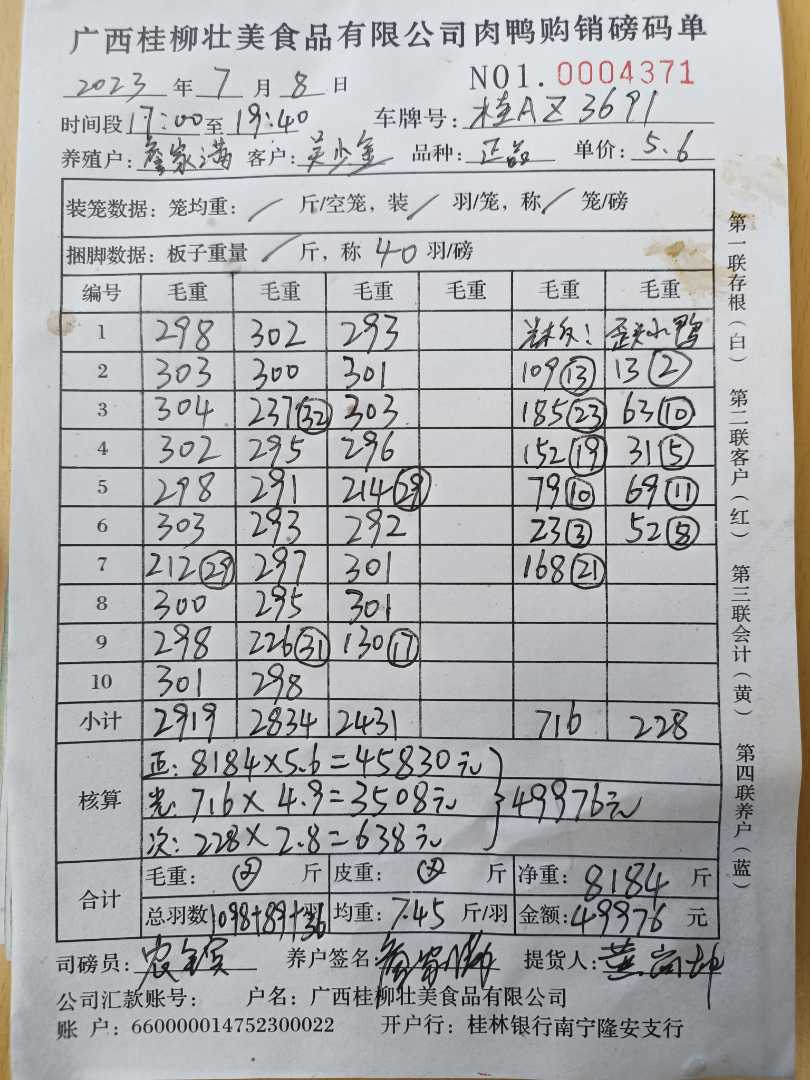 广西桂柳壮美食品有限公司肉鸭购销磅码单
2023 年 7 月 8 日 NO1. 0004371
时间段 17:00 至 19:40 车牌号: 桂AZ3691
养殖户: 詹家满 客户: 吴少金 品种: 正品 单价: 5.6
装笼数据: 笼均重: / 斤/空笼, 装 / 羽/笼, 称 / 笼/磅
捆脚数据: 板子重量 / 斤, 称 40 羽/磅
编号 毛重 毛重 毛重 毛重 毛重 毛重
1 298 302 293
2 303 300 301 109 ⑬ 13 ②
3 304 237 ㉜ 303 185 ㉓ 63 ⑩
4 302 295 296 152 ⑲ 31 ⑤
5 298 291 214 ㉙ 79 ⑩ 69 ⑪
6 303 293 292 23 ③ 52 ⑧
7 212 ㉙ 297 301 168 ㉑
8 300 295 301
9 298 226 ㉛ 130 ⑰
10 301 298
小计 2919 2834 2431 716 228
核算
正: 8184×5.6=45830元
光: 716×4.9=3508元 } 49976元
次: 228×2.8=638元
合计
毛重: 斤 皮重: 斤 净重: 8184 斤
总羽数 1098+89+36 羽 均重: 7.45 斤/羽 金额: 49976 元
司磅员: 养户签名: 提货人:
公司汇款账号: 户名: 广西桂柳壮美食品有限公司
账 户: 660000014752300022 开户行: 桂林银行南宁隆安支行
第一联存根(白) 第二联客户(红) 第三联会计(黄) 第四联养户(蓝)